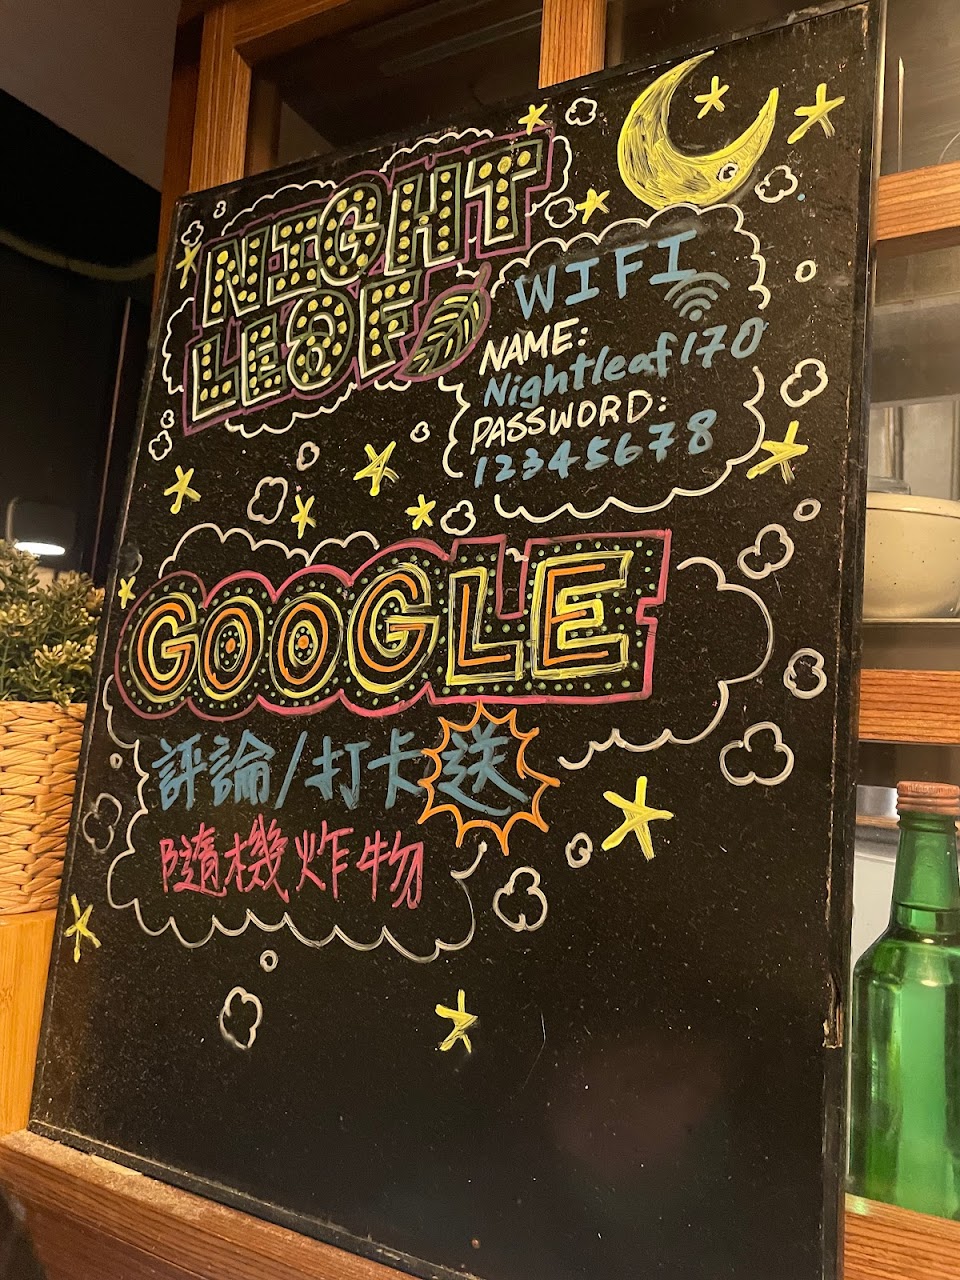 NIGHT
LEAF
WIFI
NAME:
Nightleaf170
PASSWORD:
12345678
GOOGLE
評論/打卡送
隨機炸物